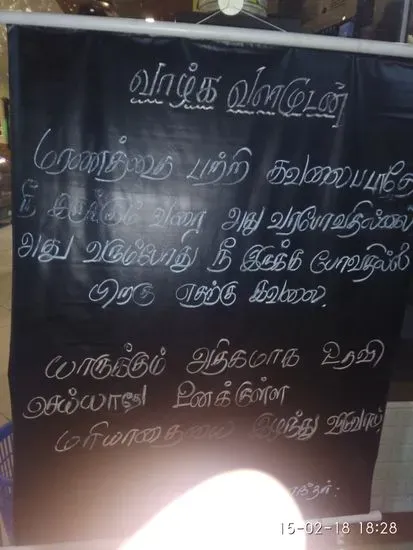 வாழ்க வளமுடன்
மரணத்தை பற்றி கவலைபடாதே
நீ இருக்கும் வரை அது வரபோவதில்லை
அது வரும்போது நீ இருக்க போவதில்ல்
பிறகு எதற்கு கவலை.
யாருக்கும் அதிகமாக உதவி
செய்யாதே உனக்குள்ள
மரியாதையை இழந்து விடுவாய்
15-02-18 18:28